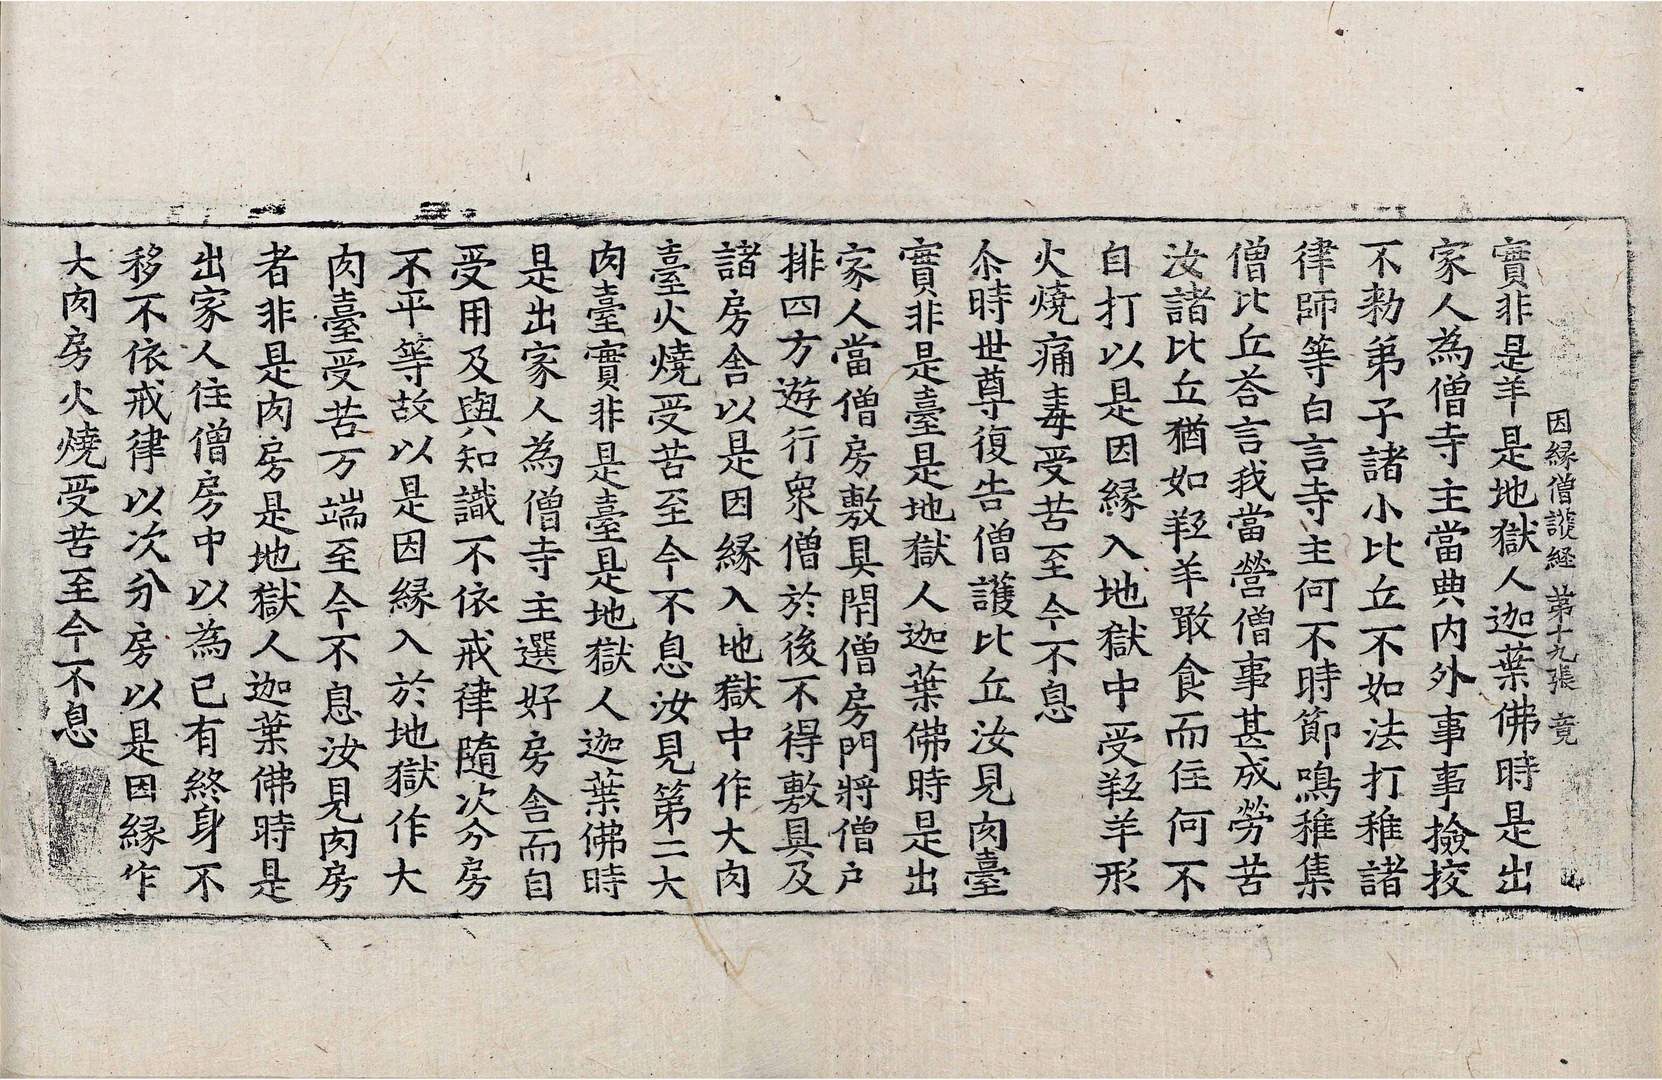 因縁僧護経 第十九張 竟
實非是羊是地獄人迦葉佛時是出
家人為僧寺主當典内外事事撿挍
不勑弟子諸小比丘不如法打稚諸
律師等白言寺主何不時節鳴稚集
僧比丘荅言我當營僧事甚成勞苦
汝諸比丘猶如羥羊噉食而住何不
自打以是因縁入地獄中受羥羊形
火燒痛毒受苦至今不息
尒時世尊復告僧護比丘汝見肉臺
實非是臺是地獄人迦葉佛時是出
家人當僧房敷具閇僧房門將僧户
排四方遊行衆僧於後不得敷具及
諸房舎以是因縁入地獄中作大肉
臺火燒受苦至今不息汝見第二大
肉臺實非是臺是地獄人迦葉佛時
是出家人為僧寺主選好房舎而自
受用及與知識不依戒律隨次分房
不平等故以是因縁入於地獄作大
肉臺受苦万端至今不息汝見肉房
者非是肉房是地獄人迦葉佛時是
出家人住僧房中以為已有終身不
移不依戒律以次分房以是因縁作
大肉房火燒受苦至今不息